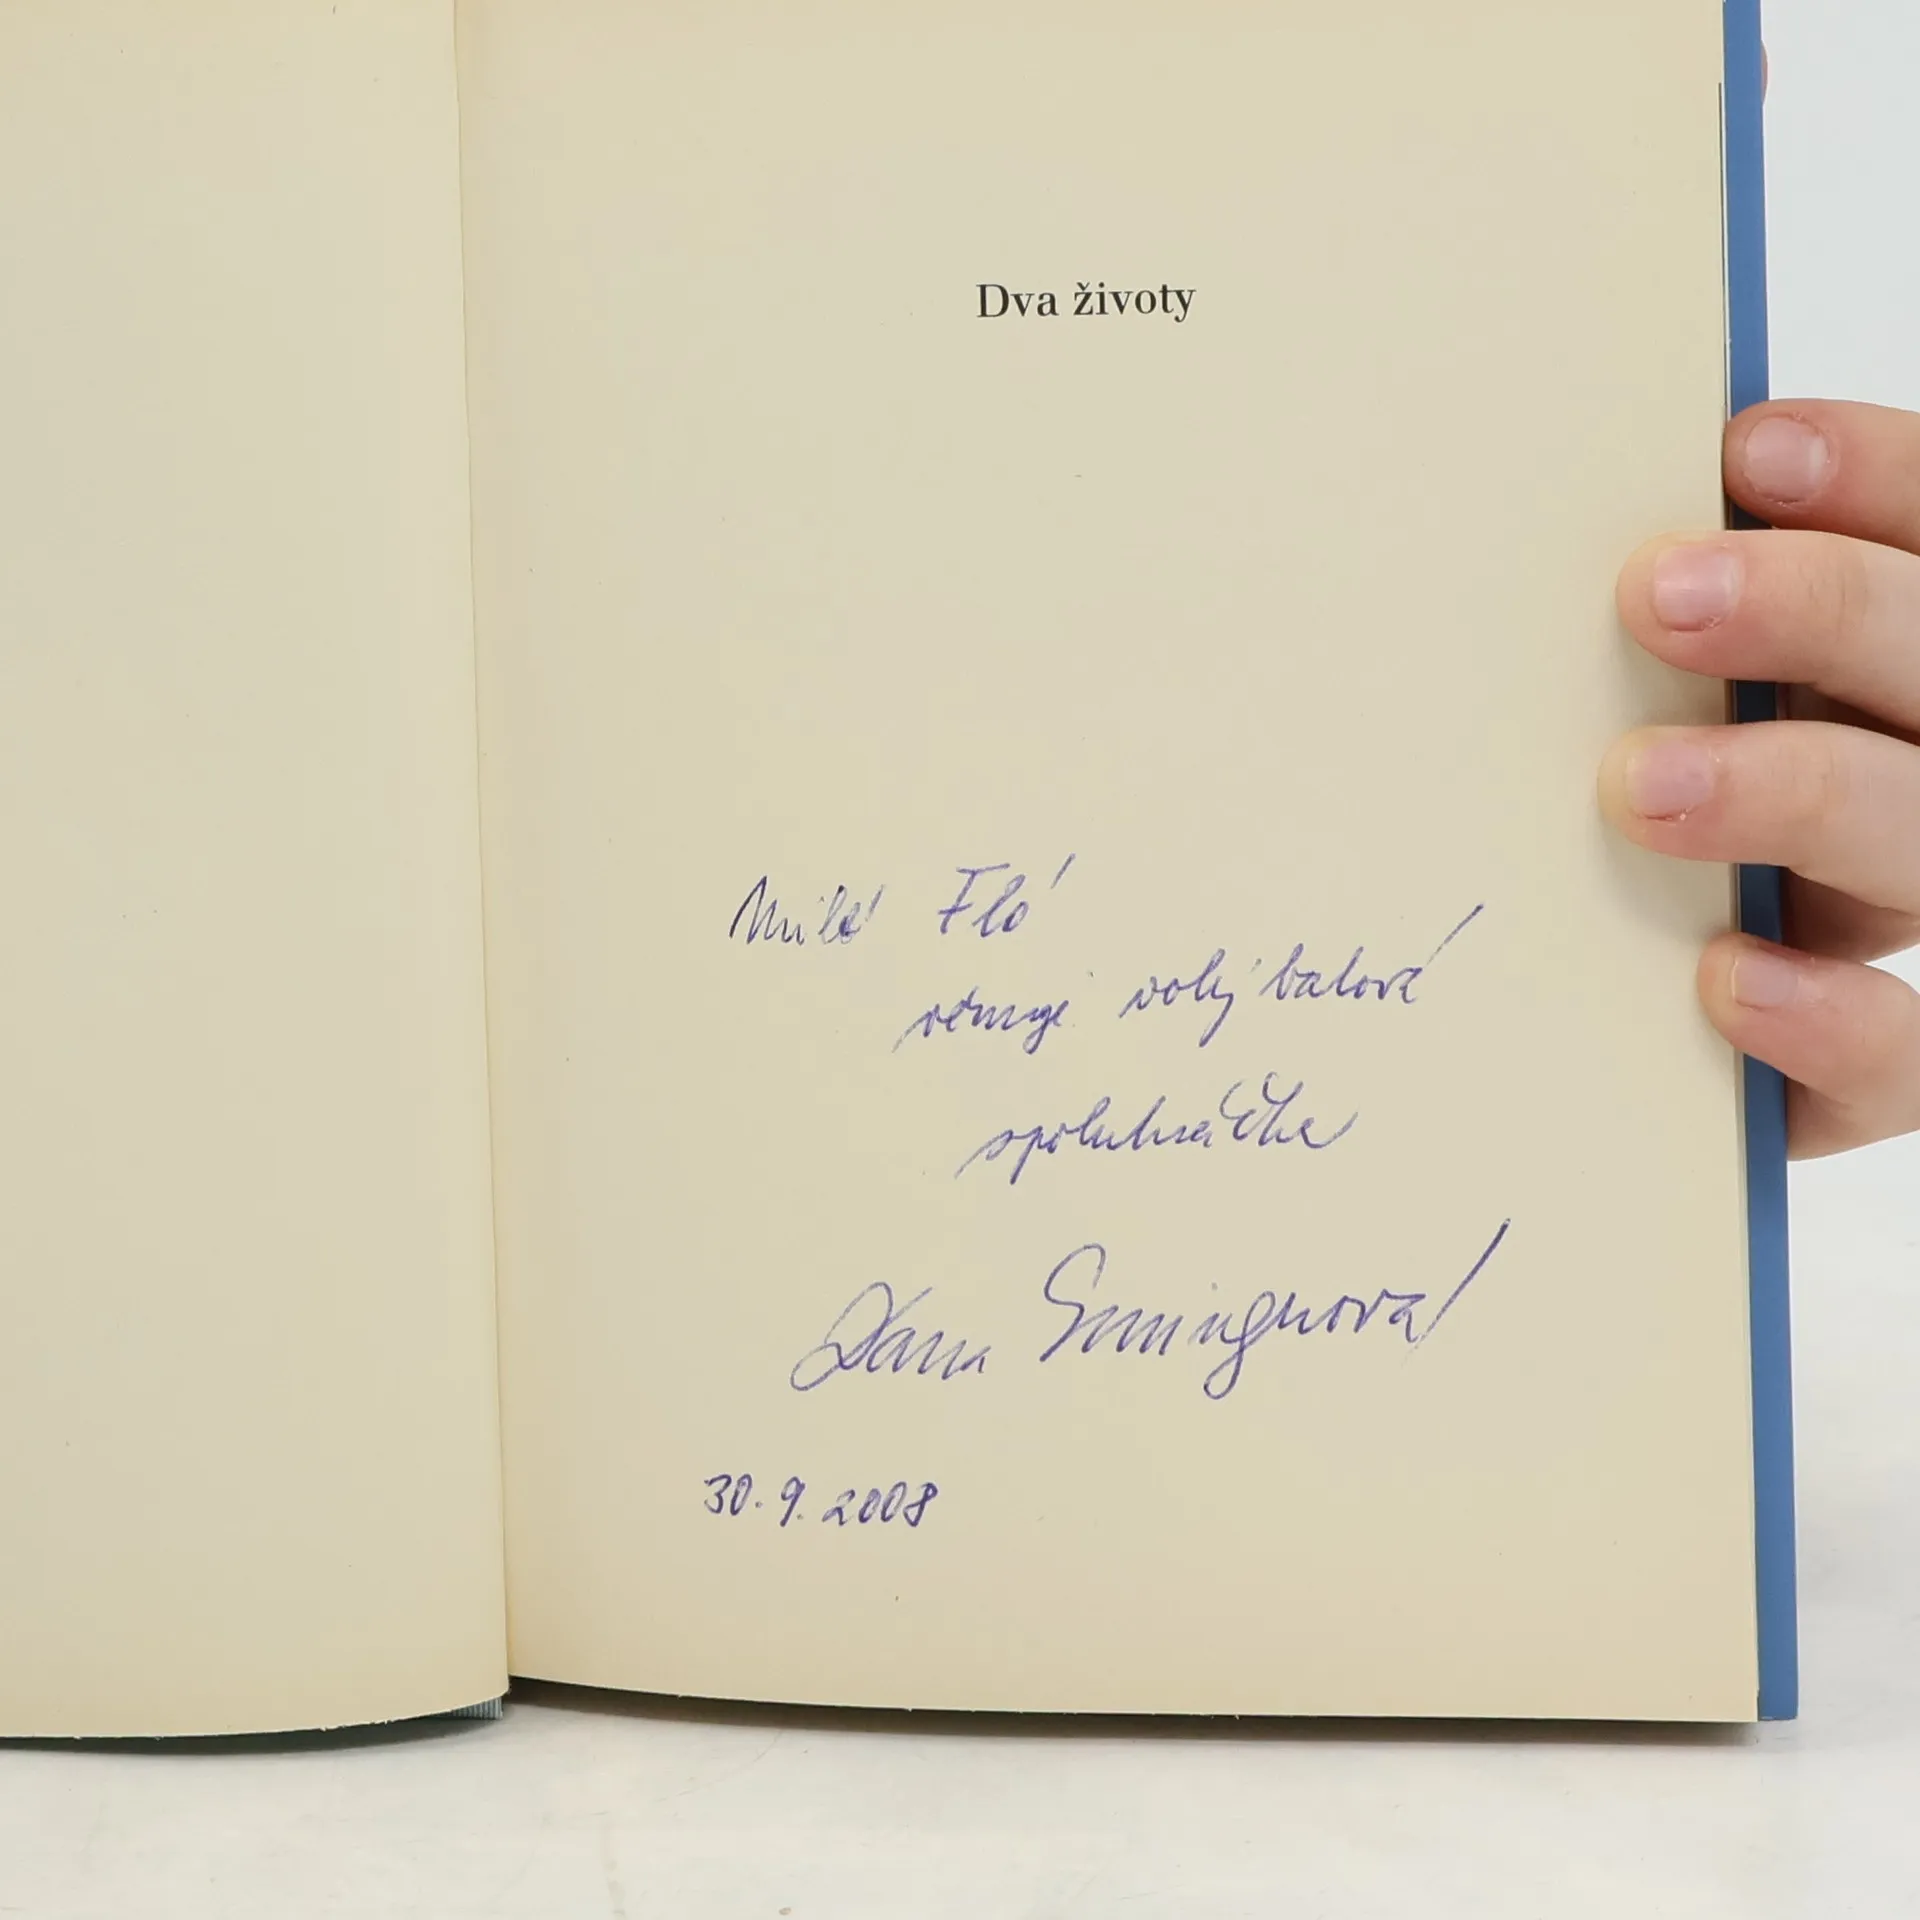 Dva životy
Milé Fló
věnuje volejbalová
spoluhráčka
Dana Emingerová
30.9.2008